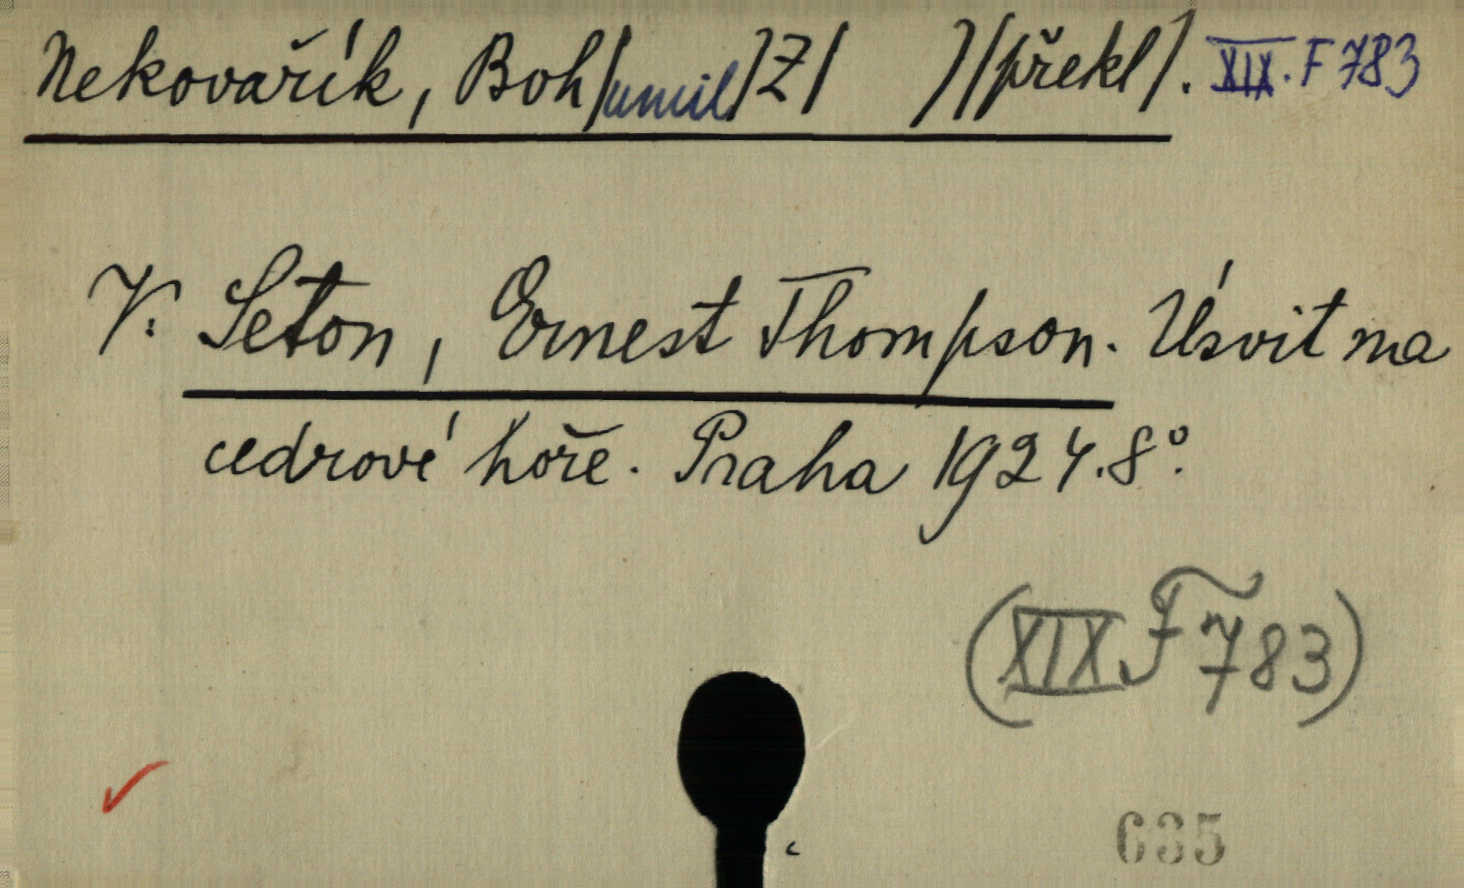 Nekovařík, Boh/umil/Z/ )/(překl/. XIX. F 783
V: Seton, Ernest Thompson. Úsvit na
cedrové hoře. Praha 1924. 8°.
(XIX F 783)
635